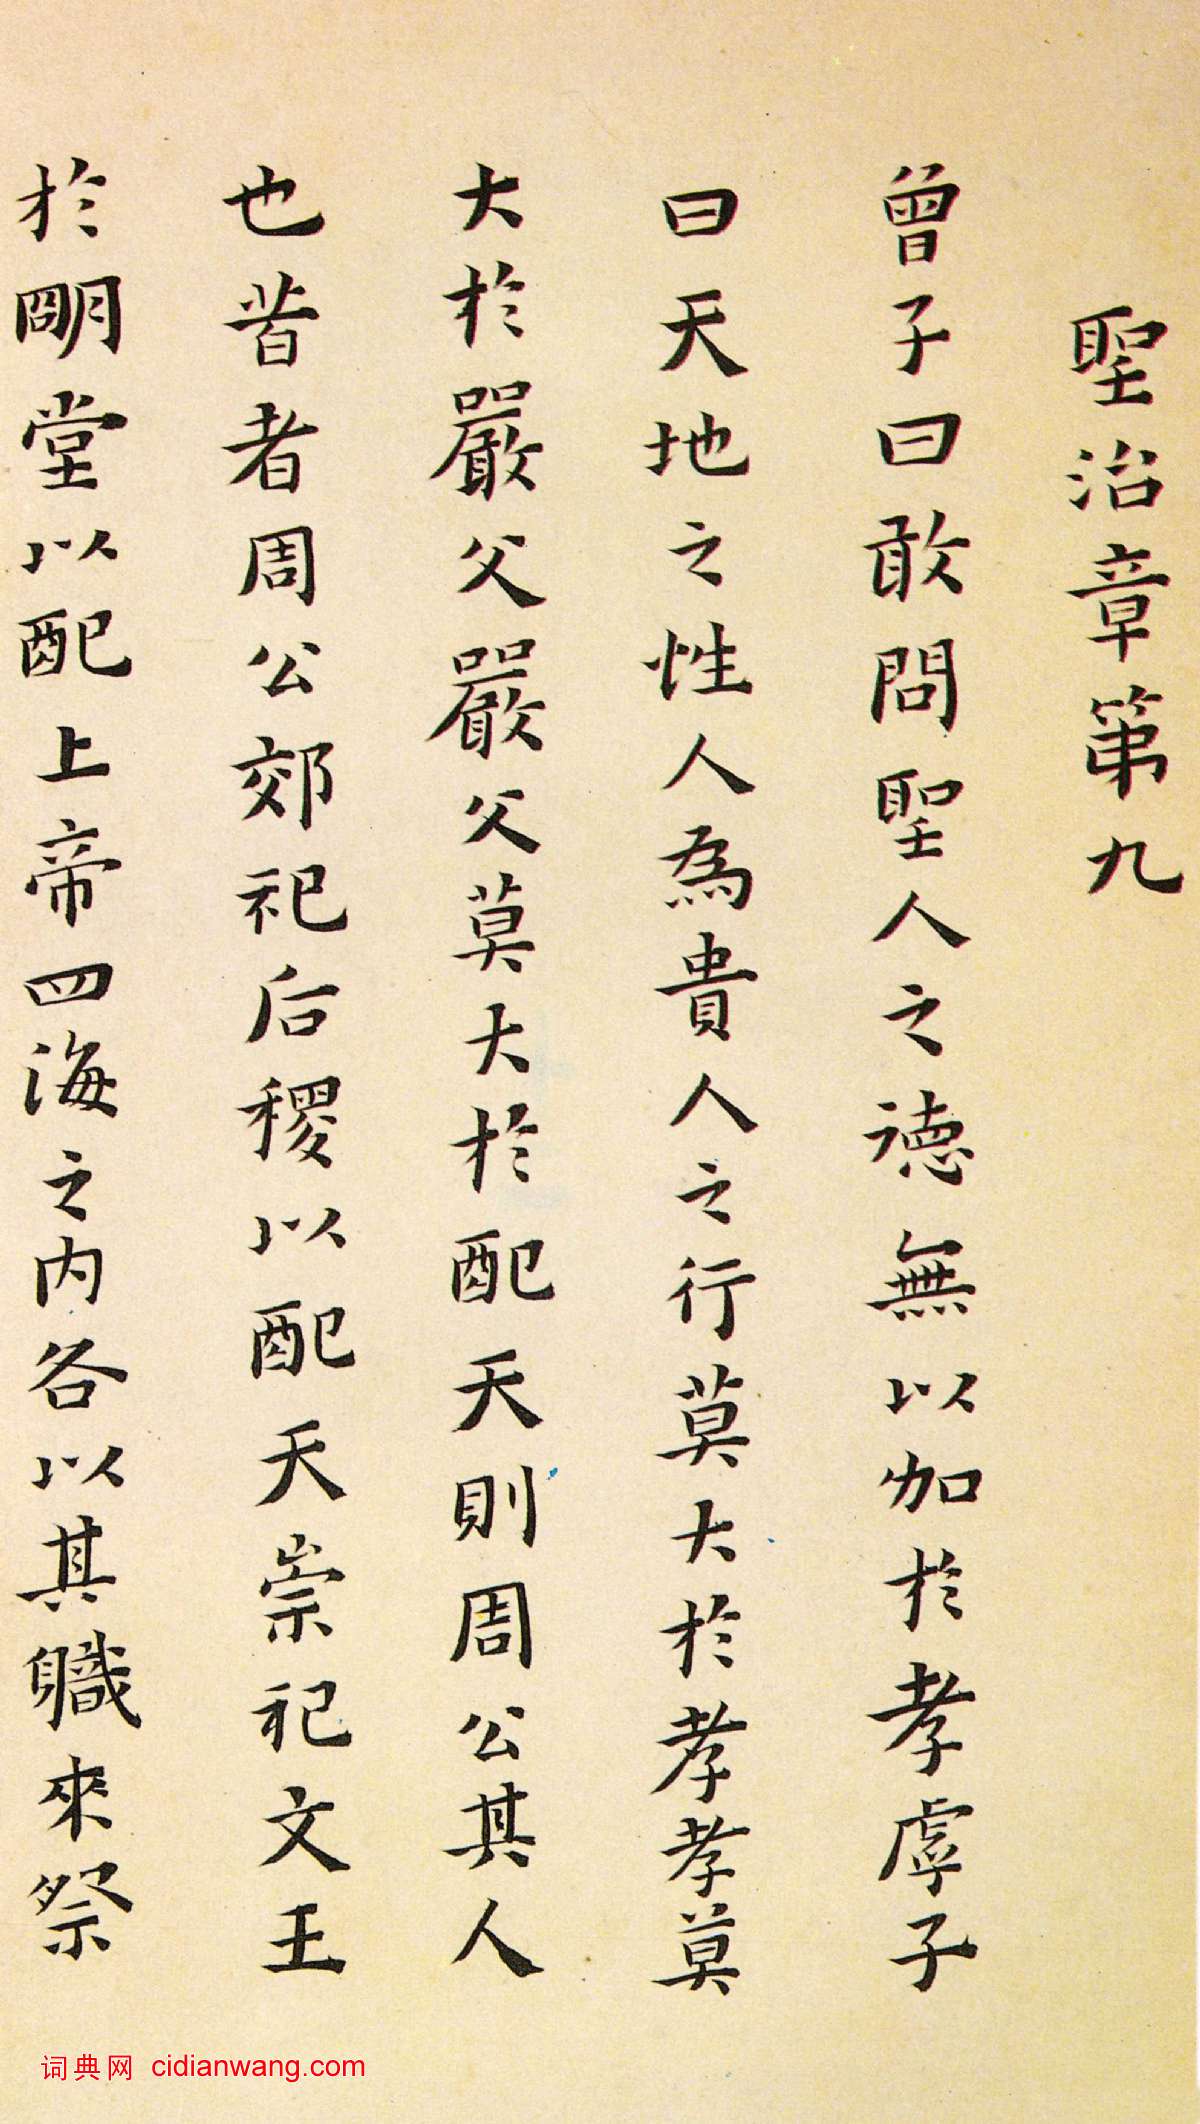 聖治章第九
曾子曰敢問聖人之德無以加於孝虖子
曰天地之性人為貴人之行莫大於孝孝莫
大於嚴父嚴父莫大於配天則周公其人
也昔者周公郊祀后稷以配天崇祀文王
於明堂以配上帝四海之內各以其職來祭
词典网 cidianwang.com